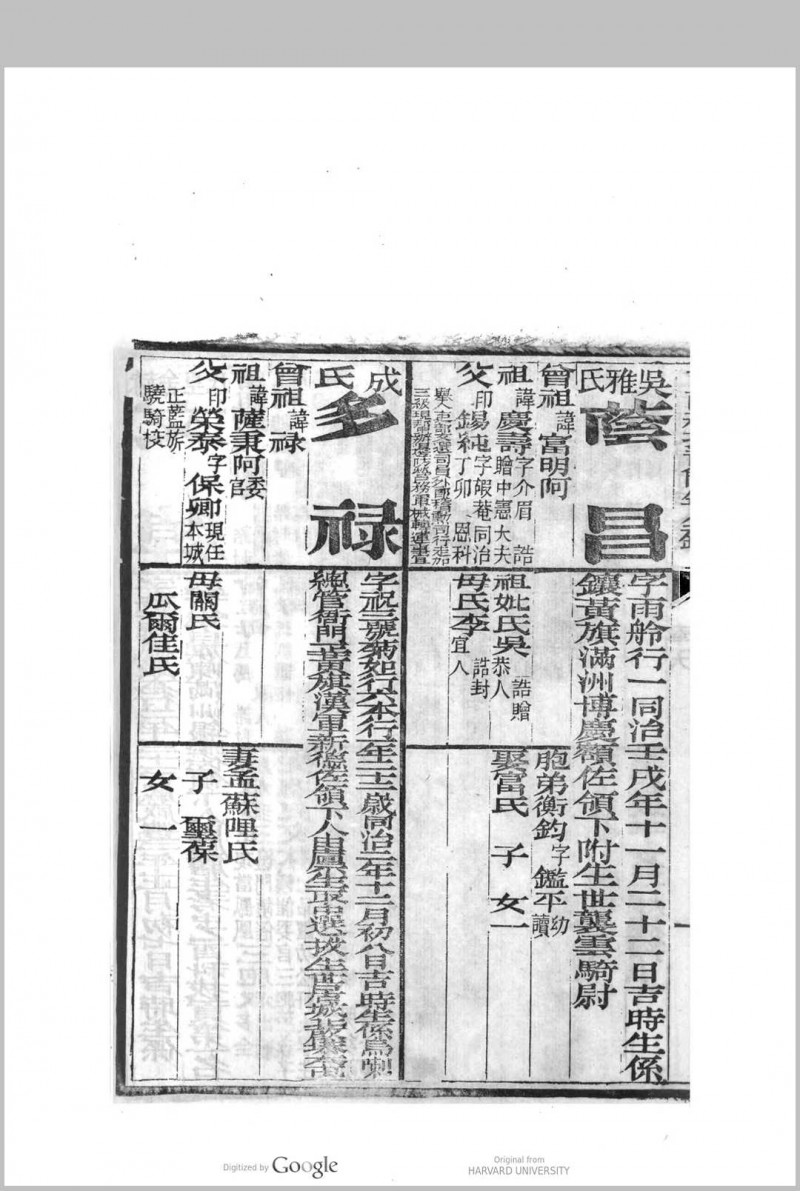 吳雅氏
蔭昌
字雨舲行一同治壬戌年十一月二十二日吉時生係
鑲黃旗滿洲博慶額佐領下附生世襲雲騎尉
曾祖諱富明阿
祖諱慶壽字介眉誥贈中憲大夫
父印錫屯字嘏菴同治丁卯恩科
祖妣氏吳誥贈恭人
母氏李誥封宜人
胞弟衡鈞字鑑平幼讀
娶富氏 子 女一
成氏
多祿
字祝三號菊如行六本行年二十二歲同治二年十二月初八日吉時生係烏喇
總管衙門正黃旗漢軍新德佐領下人由廩生
曾祖諱祿
祖諱薩秉阿委官
父印榮泰字保卿現任本城
正藍旗
驍騎校
母關氏
瓜爾佳氏
妻孟蘇哩氏
子 璽葆
女 一
Digitized by Google
Original from
HARVARD UNIVERSITY